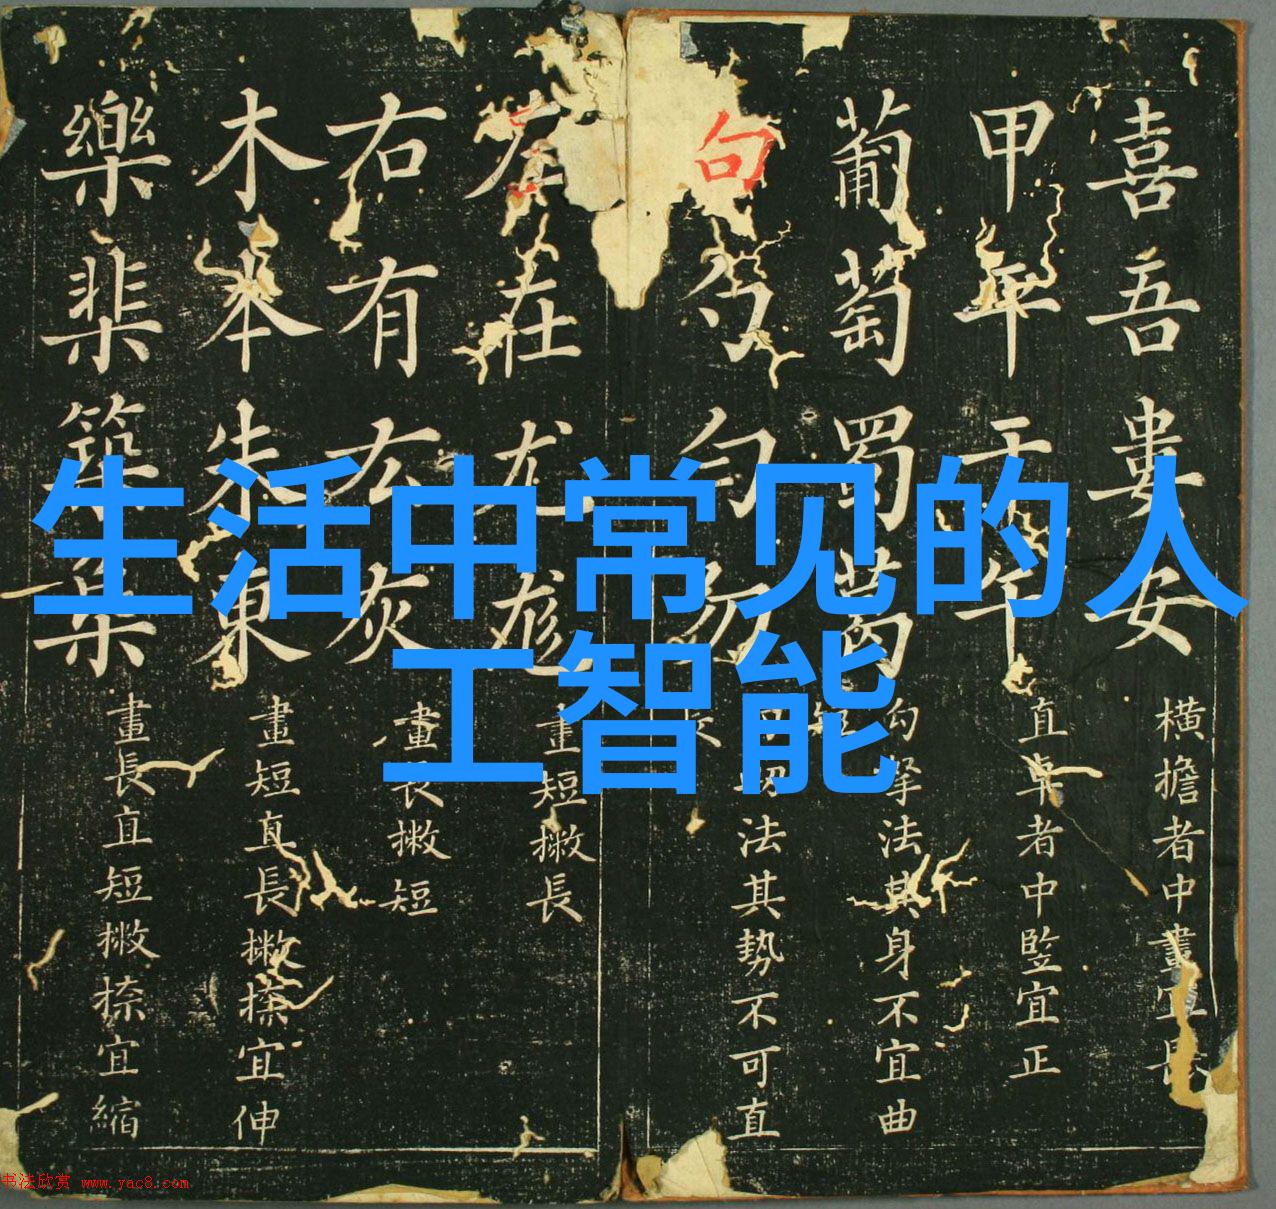 生活中常见的人
工智能
喜吾婁安
横擔者中畫宜長
甲年干午
直卓者中監宜正
葡萄蜀葛
勾拏法其身不宜曲
句勹勻勿
法其勢不可直
左在尤尨
畫短撇長
右有右灰
畫長撇短
木本朱東
畫短直長撇捺宜伸
樂棐築集
畫長直短撇捺宜縮
书法欣赏 www.yac8.com